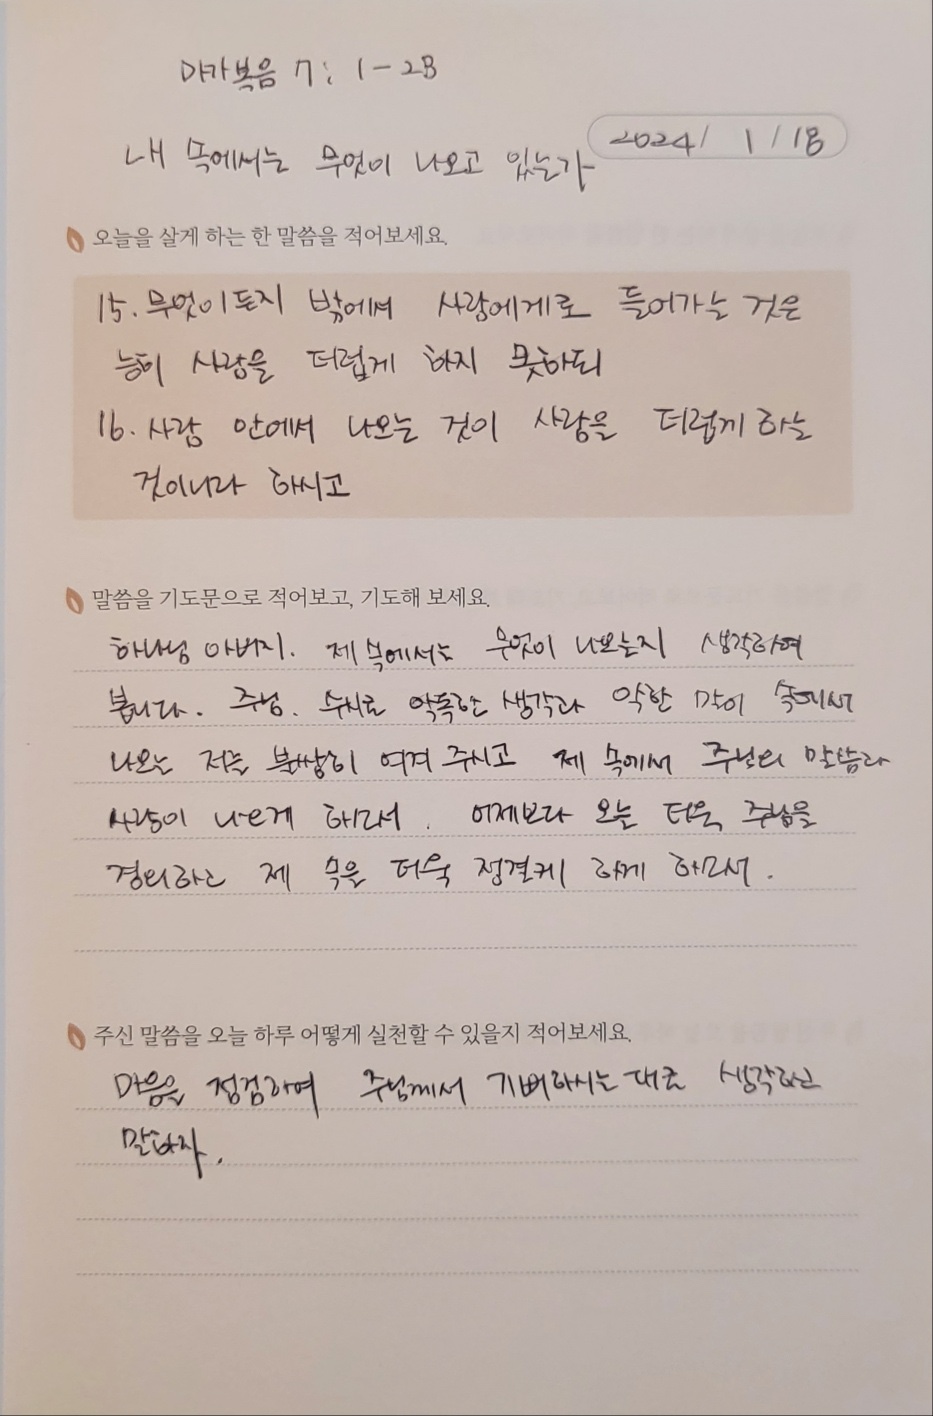 마가복음 7 : 1 - 23
2024 / 1 / 18
내 속에서는 무엇이 나오고 있는가
오늘을 살게 하는 한 말씀을 적어보세요.
15. 무엇이든지 밖에서 사람에게로 들어가는 것은
능히 사람을 더럽게 하지 못하되
16. 사람 안에서 나오는 것이 사람을 더럽게 하는
것이니라 하시고
말씀을 기도문으로 적어보고, 기도해 보세요.
하나님 아버지. 제 속에서는 무엇이 나오는지 생각하여
봅니다. 주님. 수시로 악독한 생각과 악한 말이 속에서
나오는 저를 불쌍히 여겨 주시고 제 속에서 주님의 말씀과
사랑이 나오게 하소서. 어제보다 오늘 더욱 주님을
경외하고 제 속을 더욱 정결케 하게 하소서.
주신 말씀을 오늘 하루 어떻게 실천할 수 있을지 적어보세요.
마음을 점검하여 주님께서 기뻐하시는대로 생각하고
말하자.